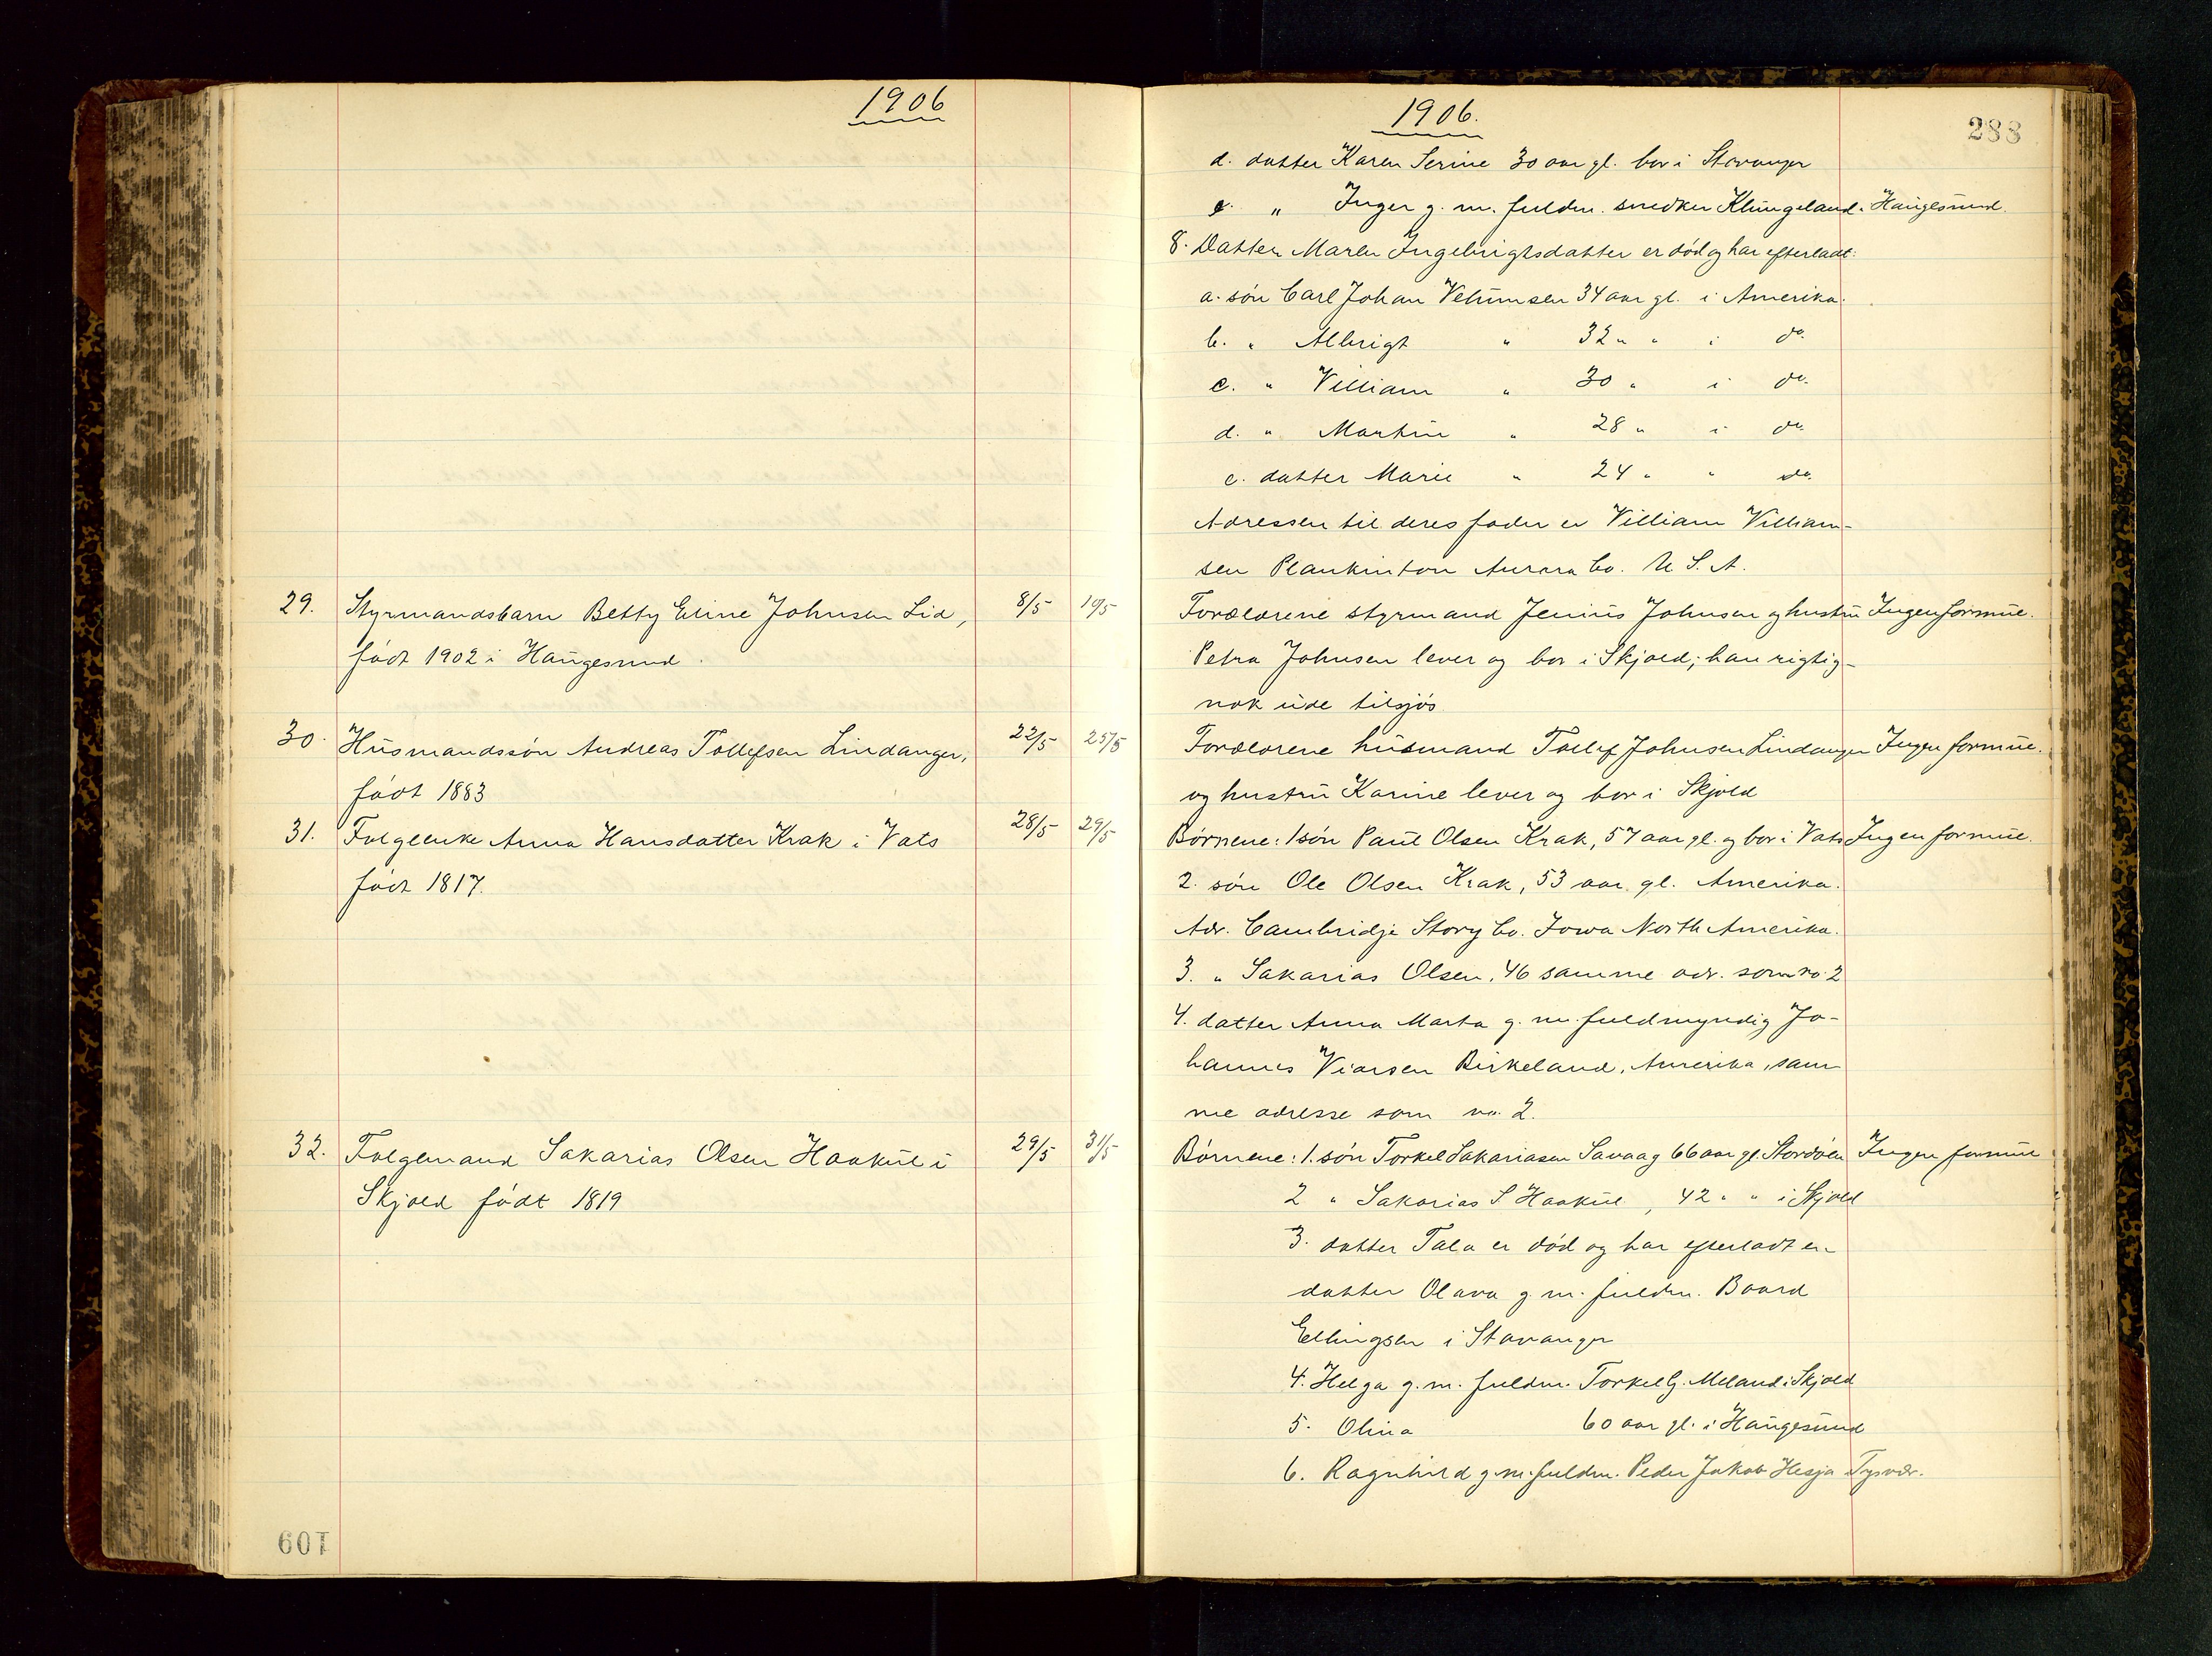 1906
29. Styrmandsbarn Betty Eline Johnsen Lid, 8/5 19/5
født 1902 i Haugesund.
30. Husmandssøn Andreas Tollefsen Lindanger, 22/5 25/5
født 1883
31. Folgeenke Anna Hansdatter Krak i Vats 28/5 29/5
født 1817.
32. Folgemand Sakarias Olsen Haakul i 29/5 31/5
Skjold født 1819
601
1906.
288
d. datter Karen Serine 30 aar gl. bor i Stavanger
e. " Inger g. m. fuldm. snedker Klungeland i Haugesund.
8. Datter Maren Ingebrigtsdatter er død og har efterladt:
a. søn Carl Johan Velumsen 34 aar gl. i Amerika.
b. " Albrigt " 32 " " i do.
c. " Villiam " 30 " i do.
d. " Martin " 28 " i do.
e. datter Marie " 24 " " do.
Adressen til deres fader er Villiam Villiam-
sen Plankinton Aurora Co. U. S. A.
Forældrene styrmand Jenius Johnsen og hustru Ingen formue.
Petra Johnsen lever og bor i Skjold; han rigtig-
nok ude tilsjøs
Forældrene husmand Tollef Johnsen Lindanger Ingen formue.
og hustru Karine lever og bor i Skjold
Børnene: 1 søn Paul Olsen Krak, 57 aar gl. og bor i Vats Ingen formue.
2. søn Ole Olsen Krak, 53 aar gl. Amerika.
Adr. Cambridje Story Co. Iowa North Amerika.
3. " Sakarias Olsen, 46 samme adr. som no 2
4. datter Anna Marta g. m. fuldmyndig Jo-
hannes Viarsen Birkeland, Amerika, sam-
me adresse som no. 2.
Børnene: 1. søn Torkel Sakariasen Savaag 66 aar gl. Stordøen Ingen formue
2 " Sakarias S. Haakul, 42 " " i Skjold
3. datter Tala er død og har efterladt en
datter Olava g. m. fuldm. Baard
Ellingsen i Stavanger
4. Helga g. m. fuldm. Torkel G. Meland i Skjold
5. Olina 60 aar gl. i Haugesund
6. Ragnhild g. m. fuldm. Peder Jakob Hesja Tysvær.